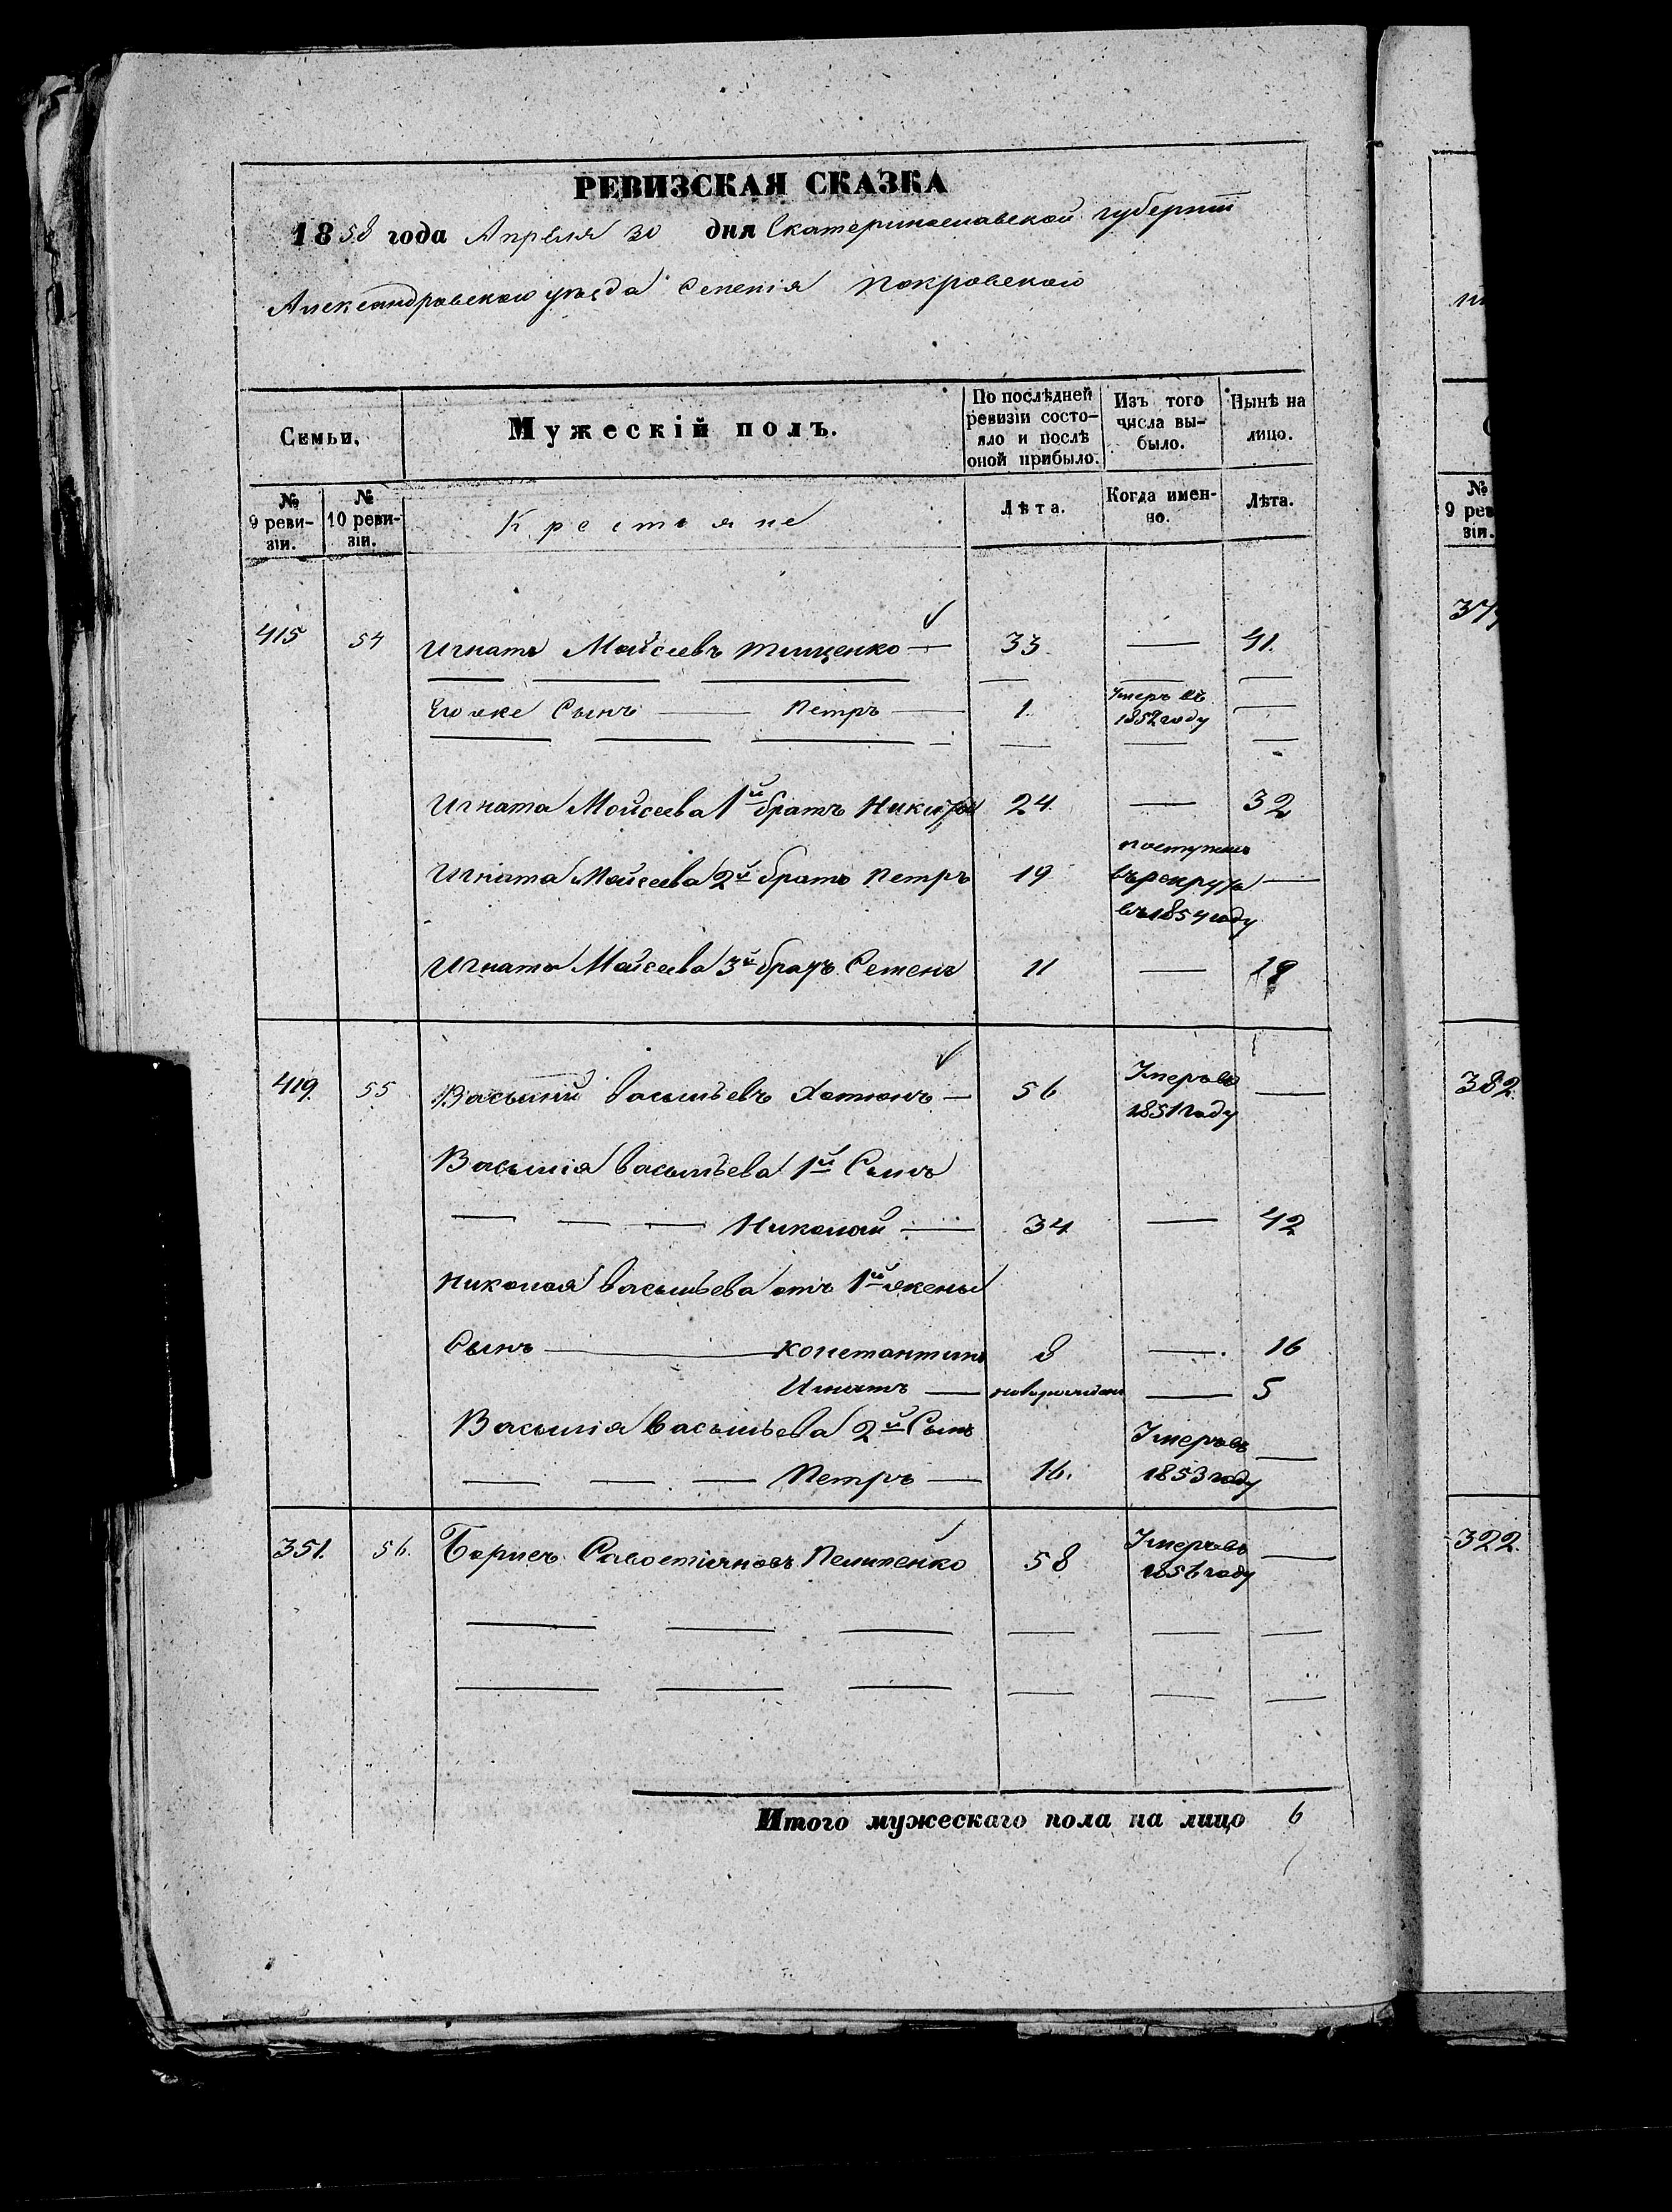 РЕВИЗСКАЯ СКАЗКА
1858 года Апреля 30 дня Екатеринославской губерніи
Александровского уѣзда Селенія Покровского
Семьи, Мужескій полъ. По послѣдней ревизіи состояло и послѣ оной прибыло. Изъ того числа выбыло. Нынѣ на лицо.
№ 9 ревизіи. № 10 ревизіи. Крестьяне Лѣта. Когда именно. Лѣта.
415 54 Игнатъ Мойсеевъ Тищенко — 33 — 41.
Его же Сынъ — Петръ — 1. Умеръ въ 1852 году —
Игната Мойсеева 1й братъ Никифоръ 24. — 32
Игната Мойсеева 2й братъ Петръ 19 поступилъ въ рекруты въ 1854 году —
Игната Мойсеева 3й братъ Семенъ 11 — 19
419. 55 Василий Васильевъ — 56 Умеръ въ 1851 году —
Василія Васильева 1й Сынъ
— — — Николай — 34 — 42
Николая Васильева отъ 1й жены
Сынъ — Константинъ 8 — 16
Игнатъ — новорожденъ — 5
Василія Васильева 2й Сынъ
— — — Петръ — 16. Умеръ въ 1853 году —
351. 56. Борисъ Савостіяновъ 58 Умеръ въ 1856 году —
Итого мужескаго пола на лицо 6
№
9 рев
зіи.
382.
322.